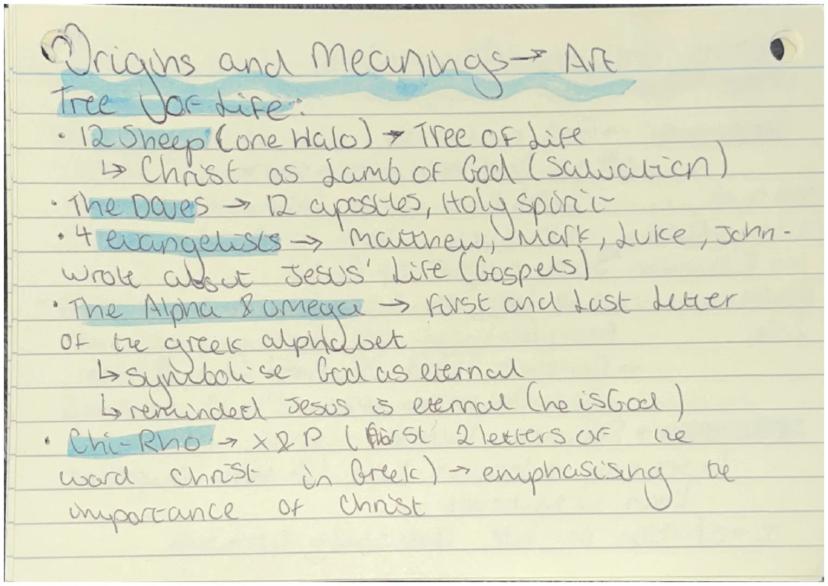 Origins and Meanings → Art
Tree of Life:
• 12 Sheep (one Halo) → Tree of Life
↳ Christ as Lamb of God (Salvation)
• The Doves → 12 apostles, Holy Spirit
• 4 evangelists → Matthew, Mark, Luke, John -
wrote about Jesus' Life (Gospels)
• The Alpha & omega → first and Last Letter
of the greek alphabet
↳ symbolise God as eternal
↳ reminded Jesus is eternal (he is God)
• Chi-Rho → X & P (first 2 letters of the
word Christ in Greek) → emphasising the
importance of Christ